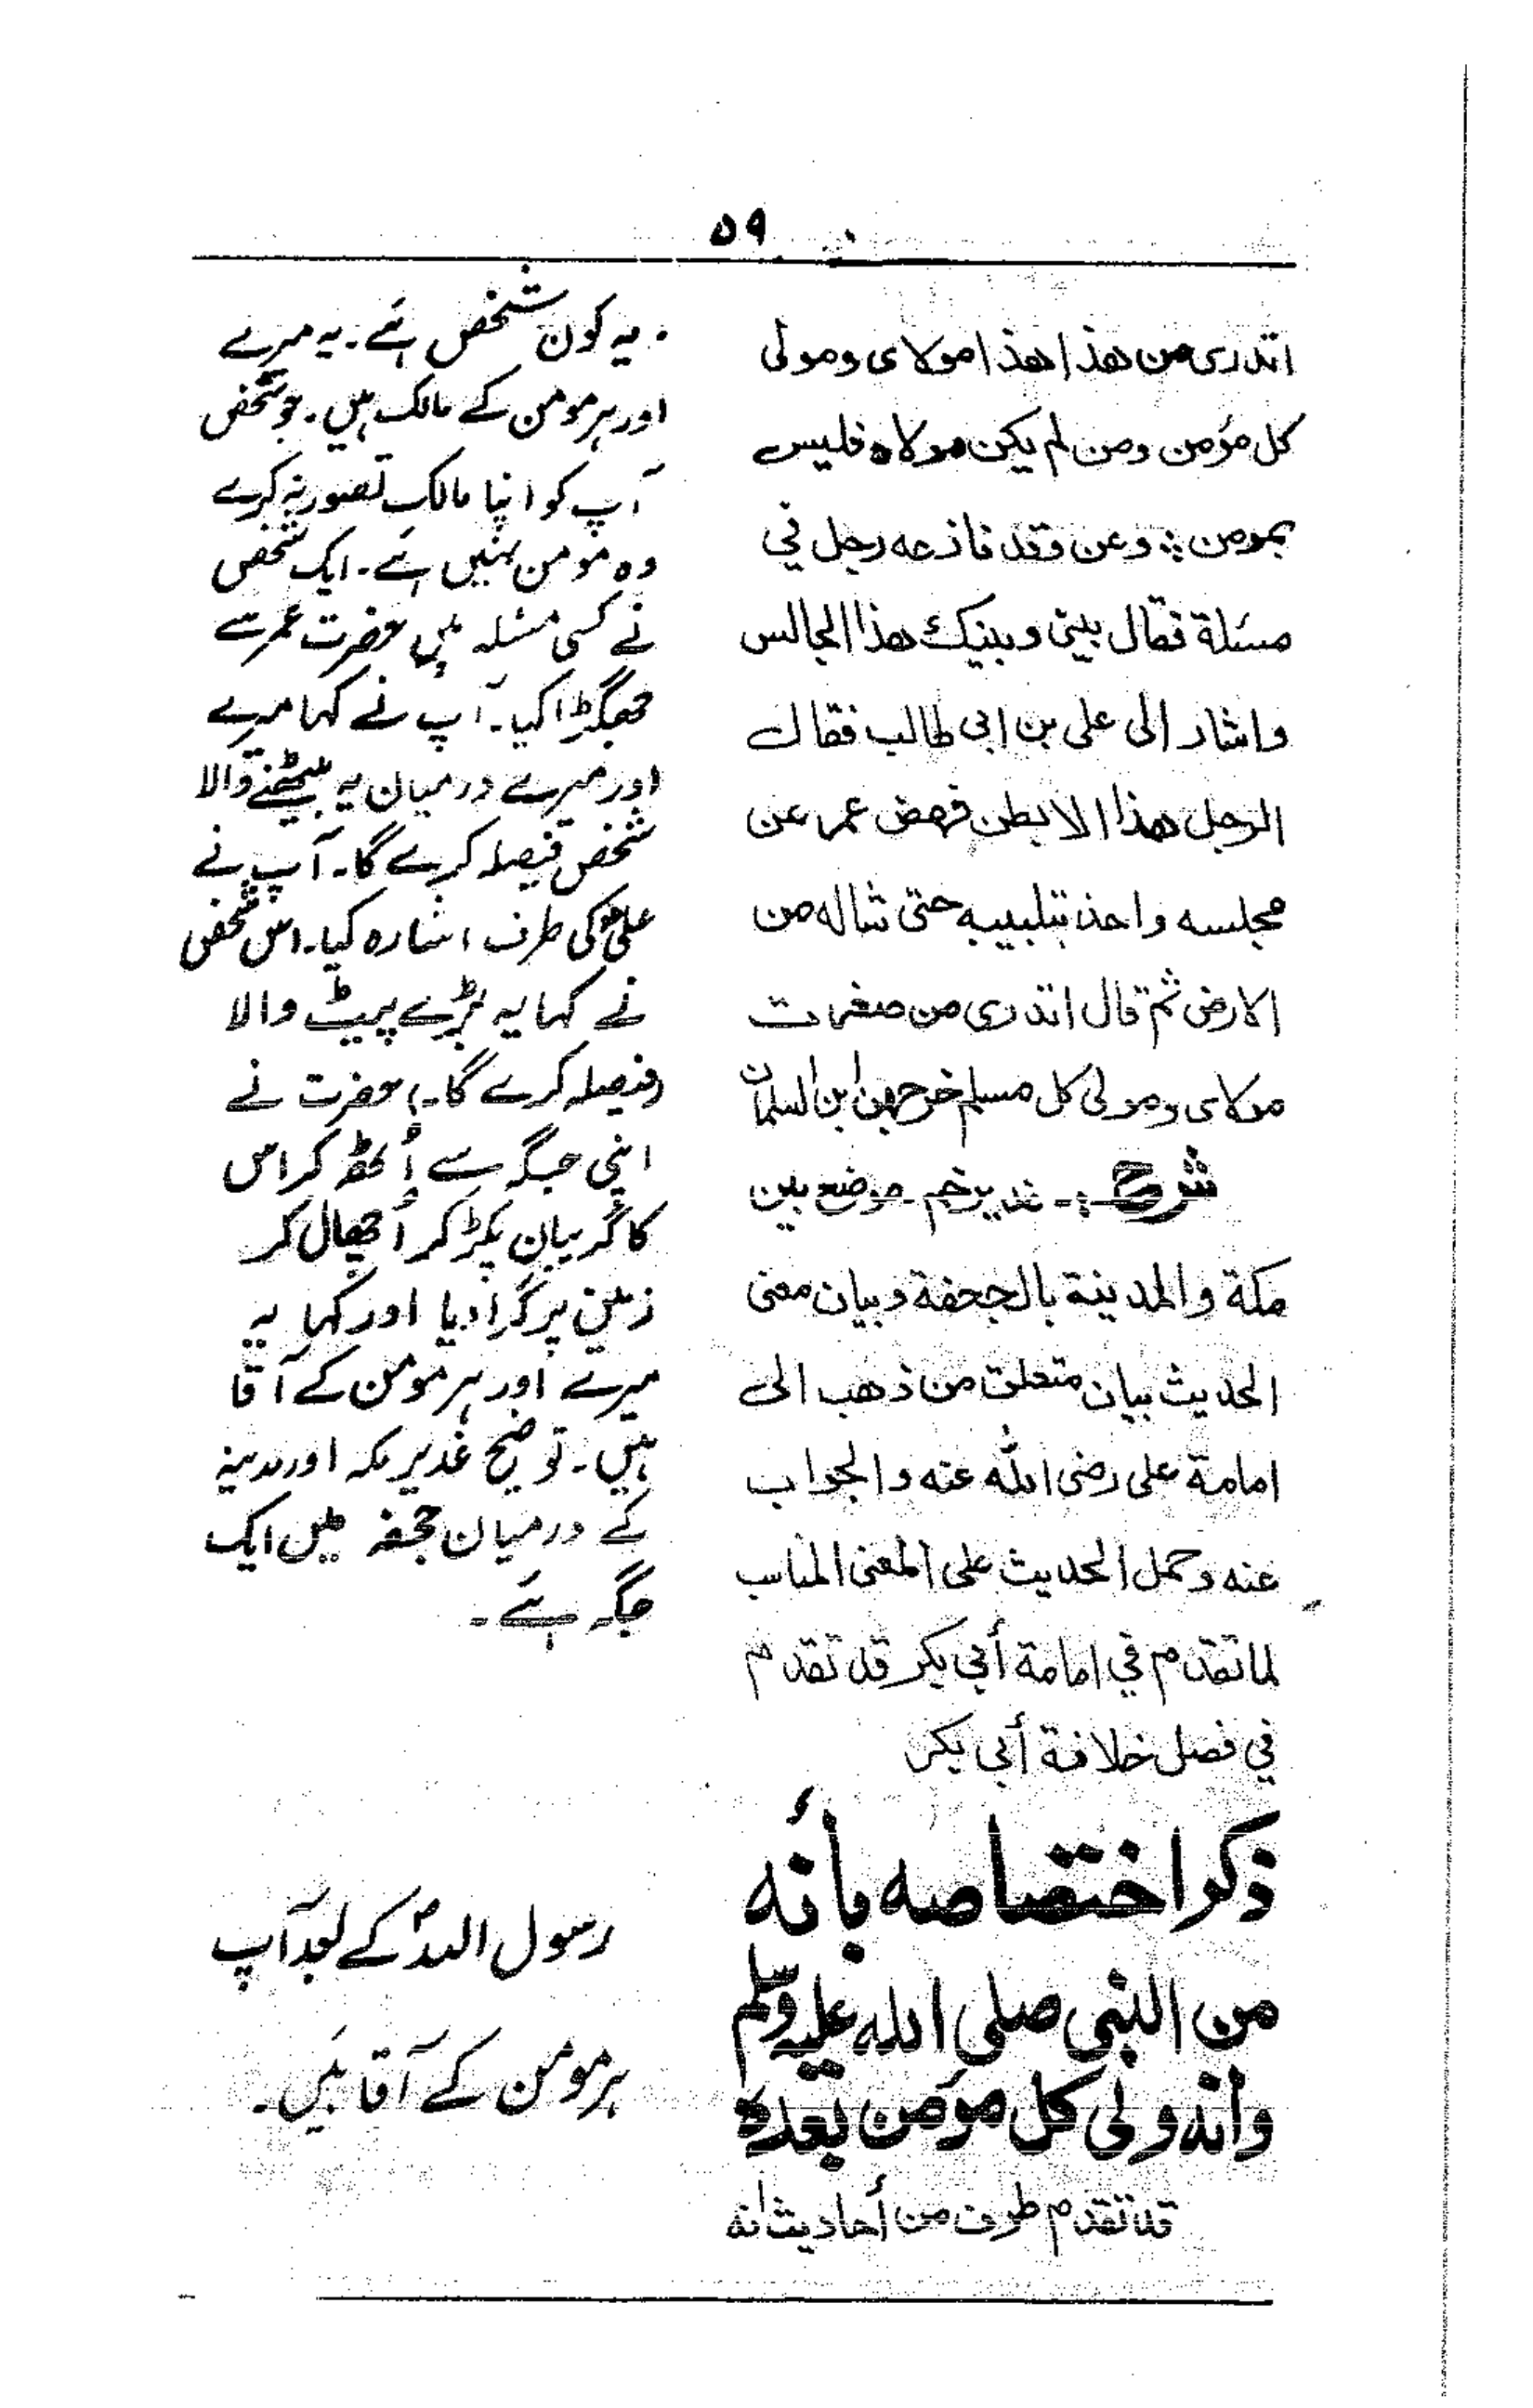 ۵۹
اتدری من هذا هذا مولای ومولی
کل مؤمن ومن لم یکن مولاہ فلیس
بمومن ۔ وعن وقد نازعه رجل فی
مسئلة فقال بینی وبینک هذا الجالس
واشار الی علی بن ابی طالب فقال
الرجل هذا الابطن فهض عمر عن
مجلسه واخذ بتلبیبه حتی شاله من
الارض ثم قال اتدری من صغرت
مولای ومولی کل مسلم خرجهن ابن السمان
شرح :۔ غدیر خم ۔ موضع بین
مکة والمدینة بالجحفة وبیان معنی
الحدیث بیان متعلق من ذهب الی
امامة علی رضی الله عنه والجواب
عنه وحمل الحدیث علی المعنی المناسب
لما تقدم فی امامة أبی بکر قد تقدم
فی فصل خلافة أبی بکر
ذکر اختصاصه بأنه
من النبی صلی الله علیه وسلم
وانه ولی کل مؤمن بعدہ
قد تقدم طرف من أحادیث انه
یہ کون شخص ہے۔ یہ میرے
اور ہر مومن کے مالک ہیں۔ جو شخص
آپ کو اپنا مالک تصور نہ کرے
وہ مومن نہیں ہے۔ ایک شخص
نے کسی مسئلہ میں حضرت عمر سے
جھگڑا کیا۔ آپ نے کہا میرے
اور میرے درمیان یہ بیٹھنے والا
شخص فیصلہ کرے گا۔ آپ نے
علی کی طرف اشارہ کیا۔ اس شخص
نے کہا یہ بڑے پیٹ والا
(فیصلہ کرے گا۔) حضرت نے
اپنی جگہ سے اُٹھ کر اس
کا گریبان پکڑ کر اُچھال کر
زمین پر گرا دیا اور کہا یہ
میرے اور ہر مومن کے آقا
ہیں۔ توضیح غدیر مکہ اور مدینہ
کے درمیان جحفہ میں ایک
جگہ ہے۔
رسول اللہؐ کے بعد آپ
ہر مومن کے آقا ہیں۔